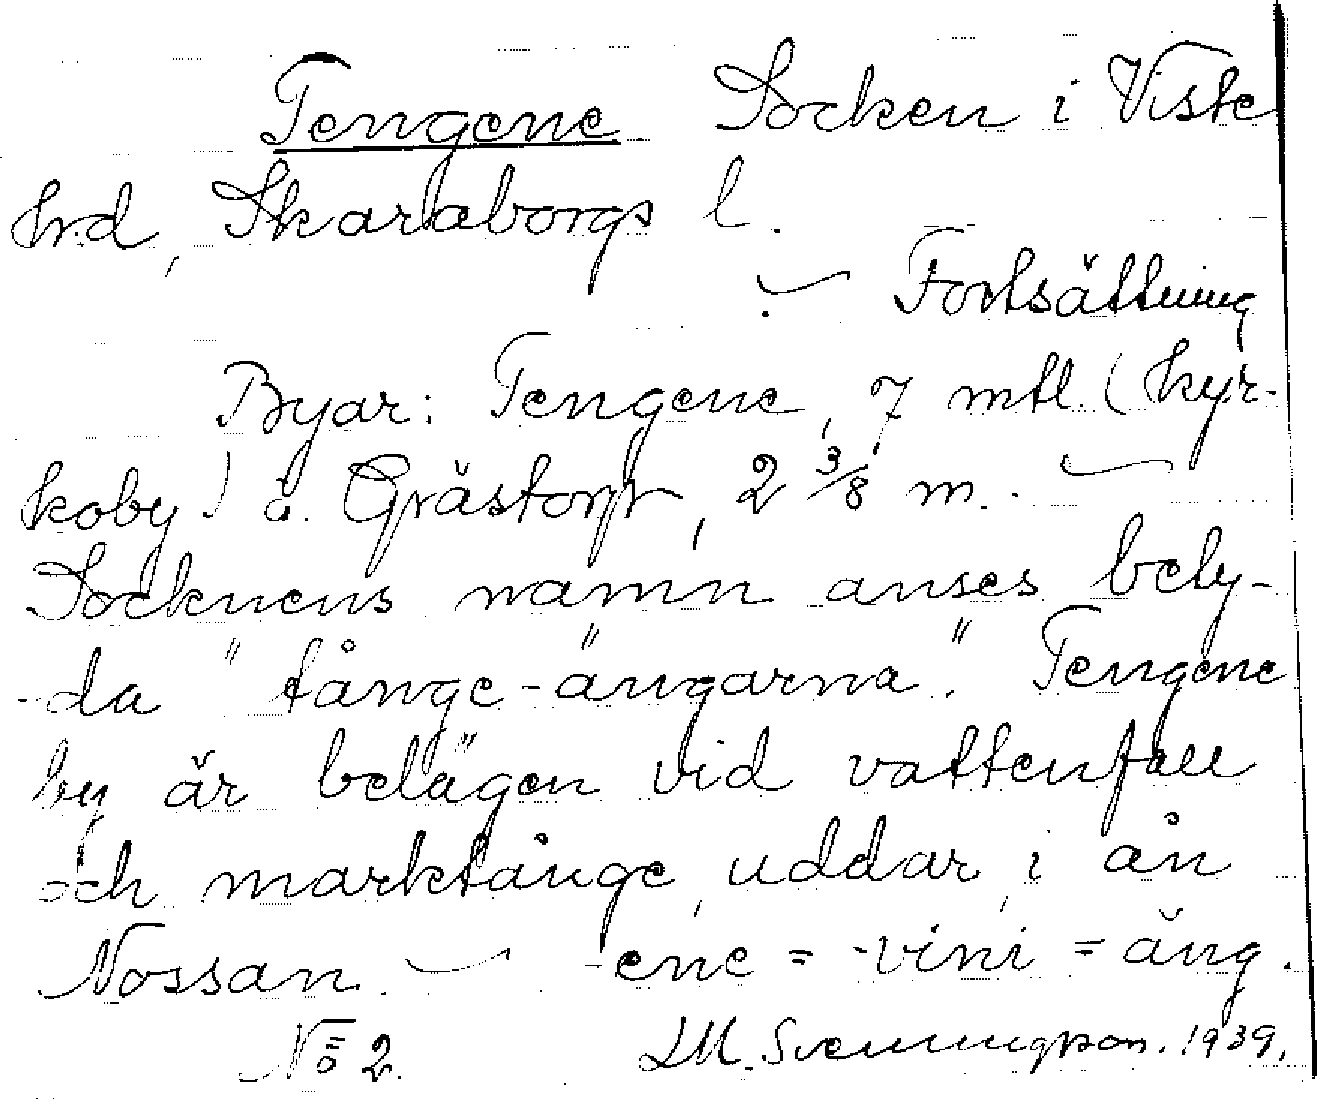 Tengene Socken i Viste
hrd, Skaraborgs l.
. — Fortsättning
Byar: Tengene, 7 mtl. (kyr-
koby) o. Grästorp, 2 3/8 m. —
Socknens namn anses bety-
-da "tånge-ängarna". Tengene
by är belägen vid vattenfall
och marktånge, uddar, i ån
Nossan. — -ene = -vini = äng.
No 2. LM. Svenungsson. 1939.